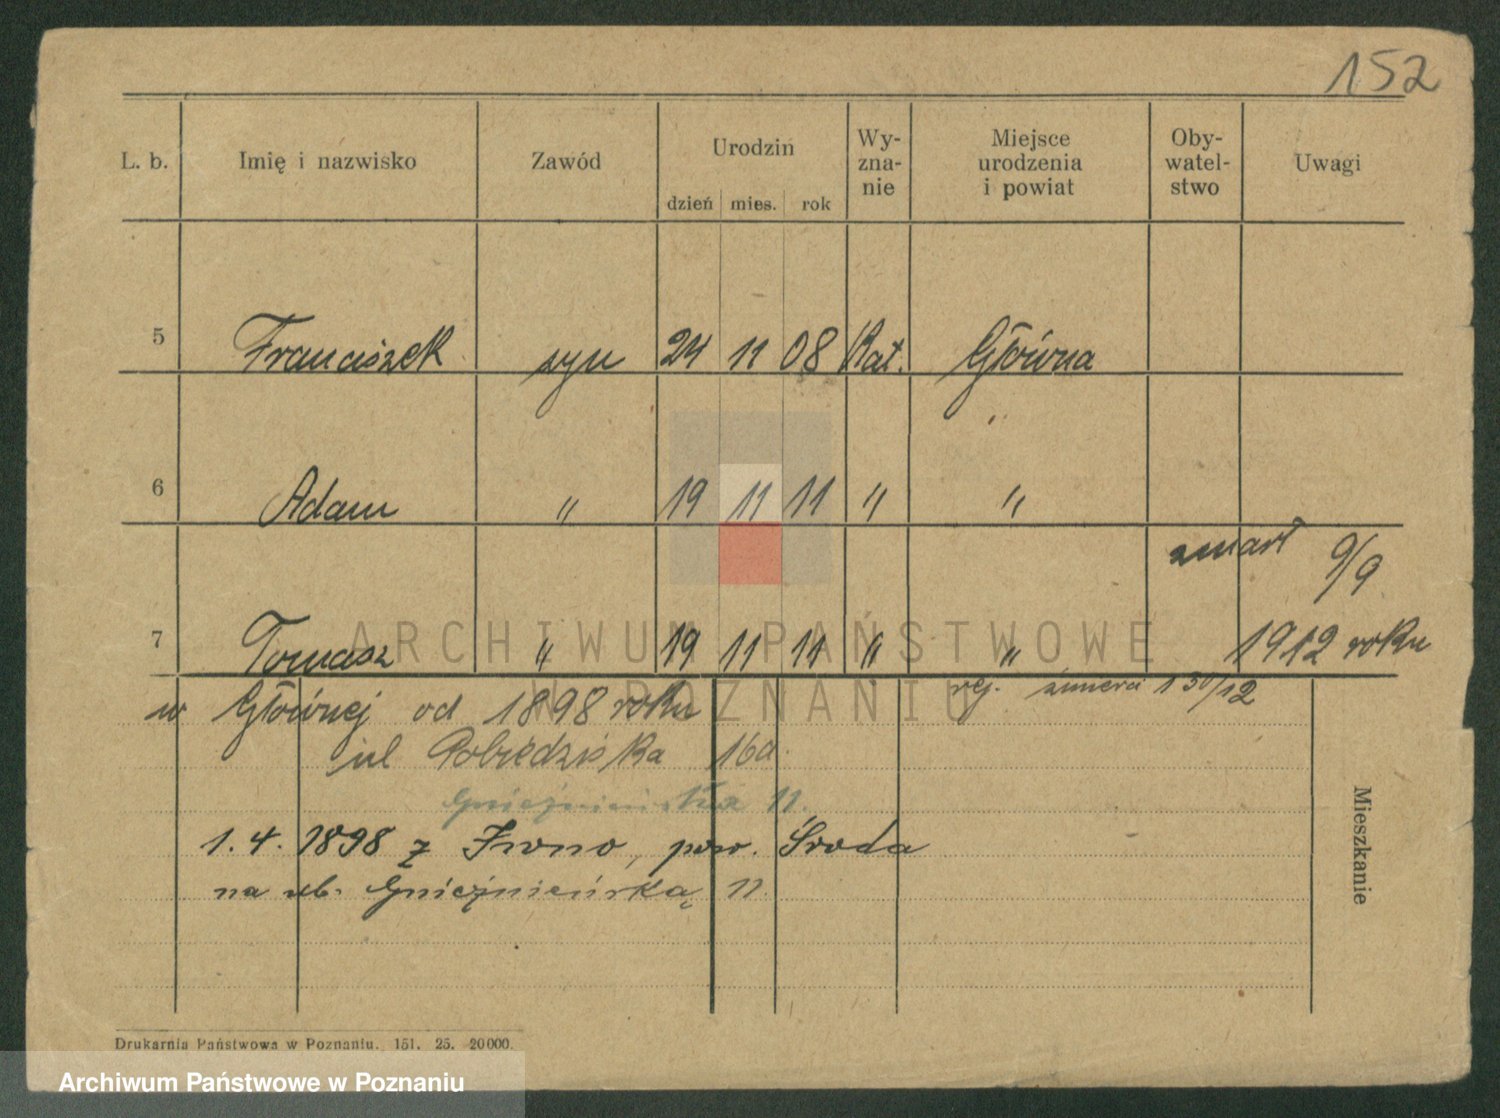 152
L. b. Imię i nazwisko Zawód Urodzin dzień mies. rok Wy-zna-nie Miejsce urodzenia i powiat Oby-watel-stwo Uwagi
5 Franciszek syn 24 11 08 Kat. Główna
6 Adam " 19 11 11 " "
zmarł 9/9
7 Tomasz " 19 11 11 " " 1912 roku
ARCHIWUM PAŃSTWOWE
W POZNANIU
w Głównej od 1898 roku
rej. śmierci 130/12
ul Pobiedziska 16a.
Gnieźnieńska 11.
1. 4. 1898 z Iwno, pow. Środa
na ul. Gnieźnieńską 11.
Mieszkanie
Drukarnia Państwowa w Poznaniu. 151. 25. 20000.
Archiwum Państwowe w Poznaniu